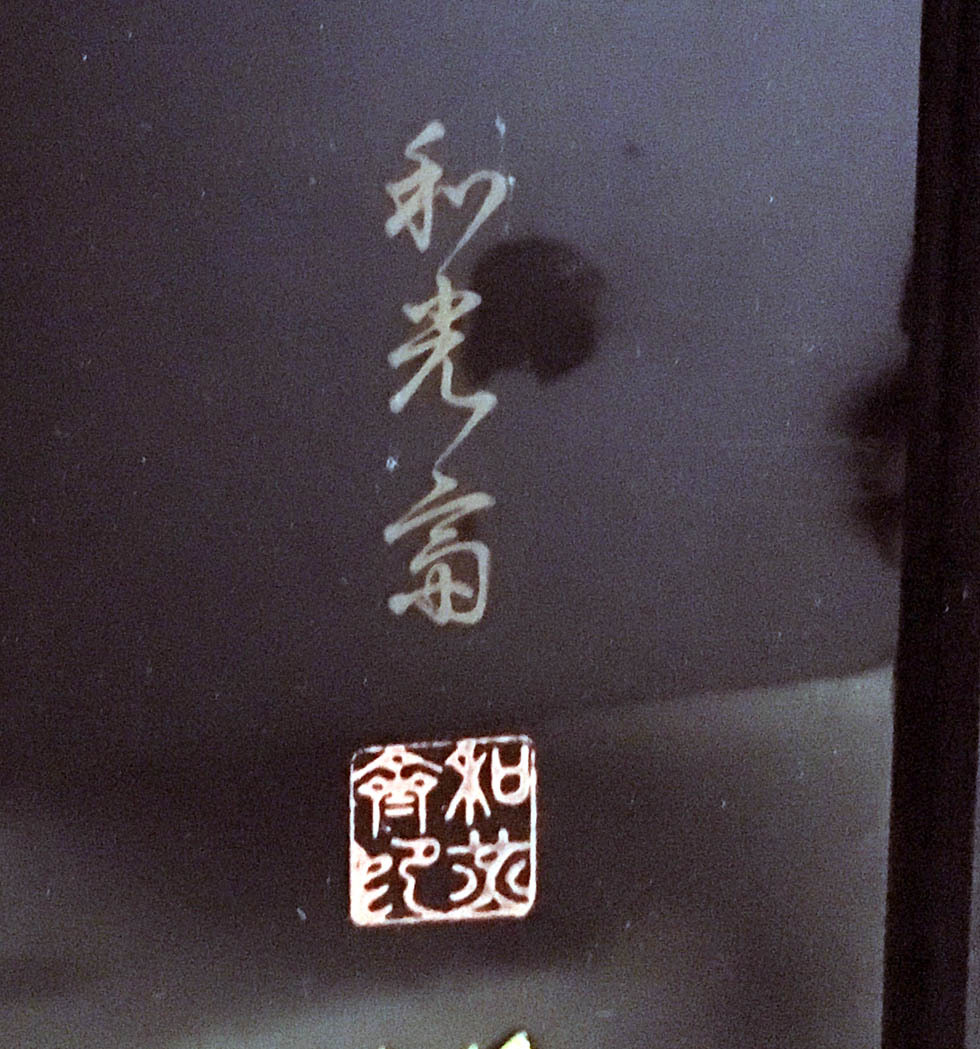 和光斎
和光
齊印